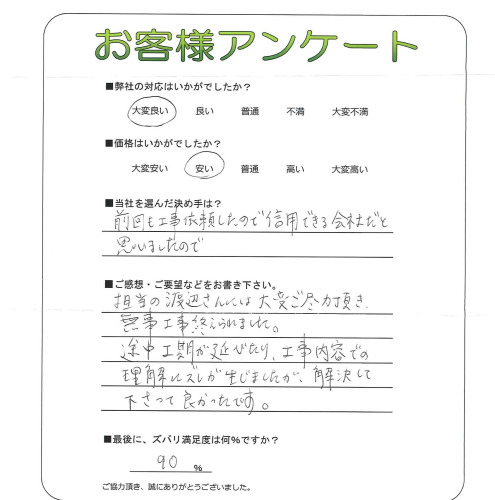 お客様アンケート
■弊社の対応はいかがでしたか？
大変良い 良い 普通 不満 大変不満
■価格はいかがでしたか？
大変安い 安い 普通 高い 大変高い
■当社を選んだ決め手は？
前回も工事依頼したので信用できる会社だと
思いましたので
■ご感想・ご要望などをお書き下さい。
担当の渡辺さんには大変ご尽力頂き、
無事工事終えられました。
途中工期が延びたり、工事内容での
理解にズレが生じましたが、解決して
下さって良かったです。
■最後に、ズバリ満足度は何%ですか？
90 %
ご協力頂き、誠にありがとうございました。